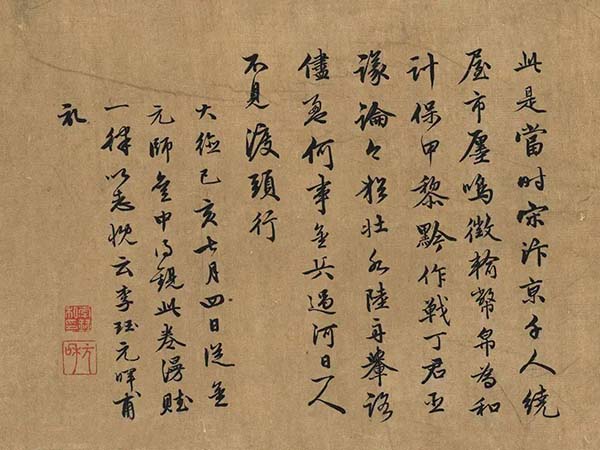 此是當时宋汴京千人繞
屋市廛鳴徵輸幣帛為和
計保甲黎黔作戰丁君臣
議論々猶壯水陸舟輦路
儘何事金兵過河日一人
不見渡頭行
大德己亥七月四日從金
元帥中得觀此卷漫賦
一律以志忱云李珏元暉甫